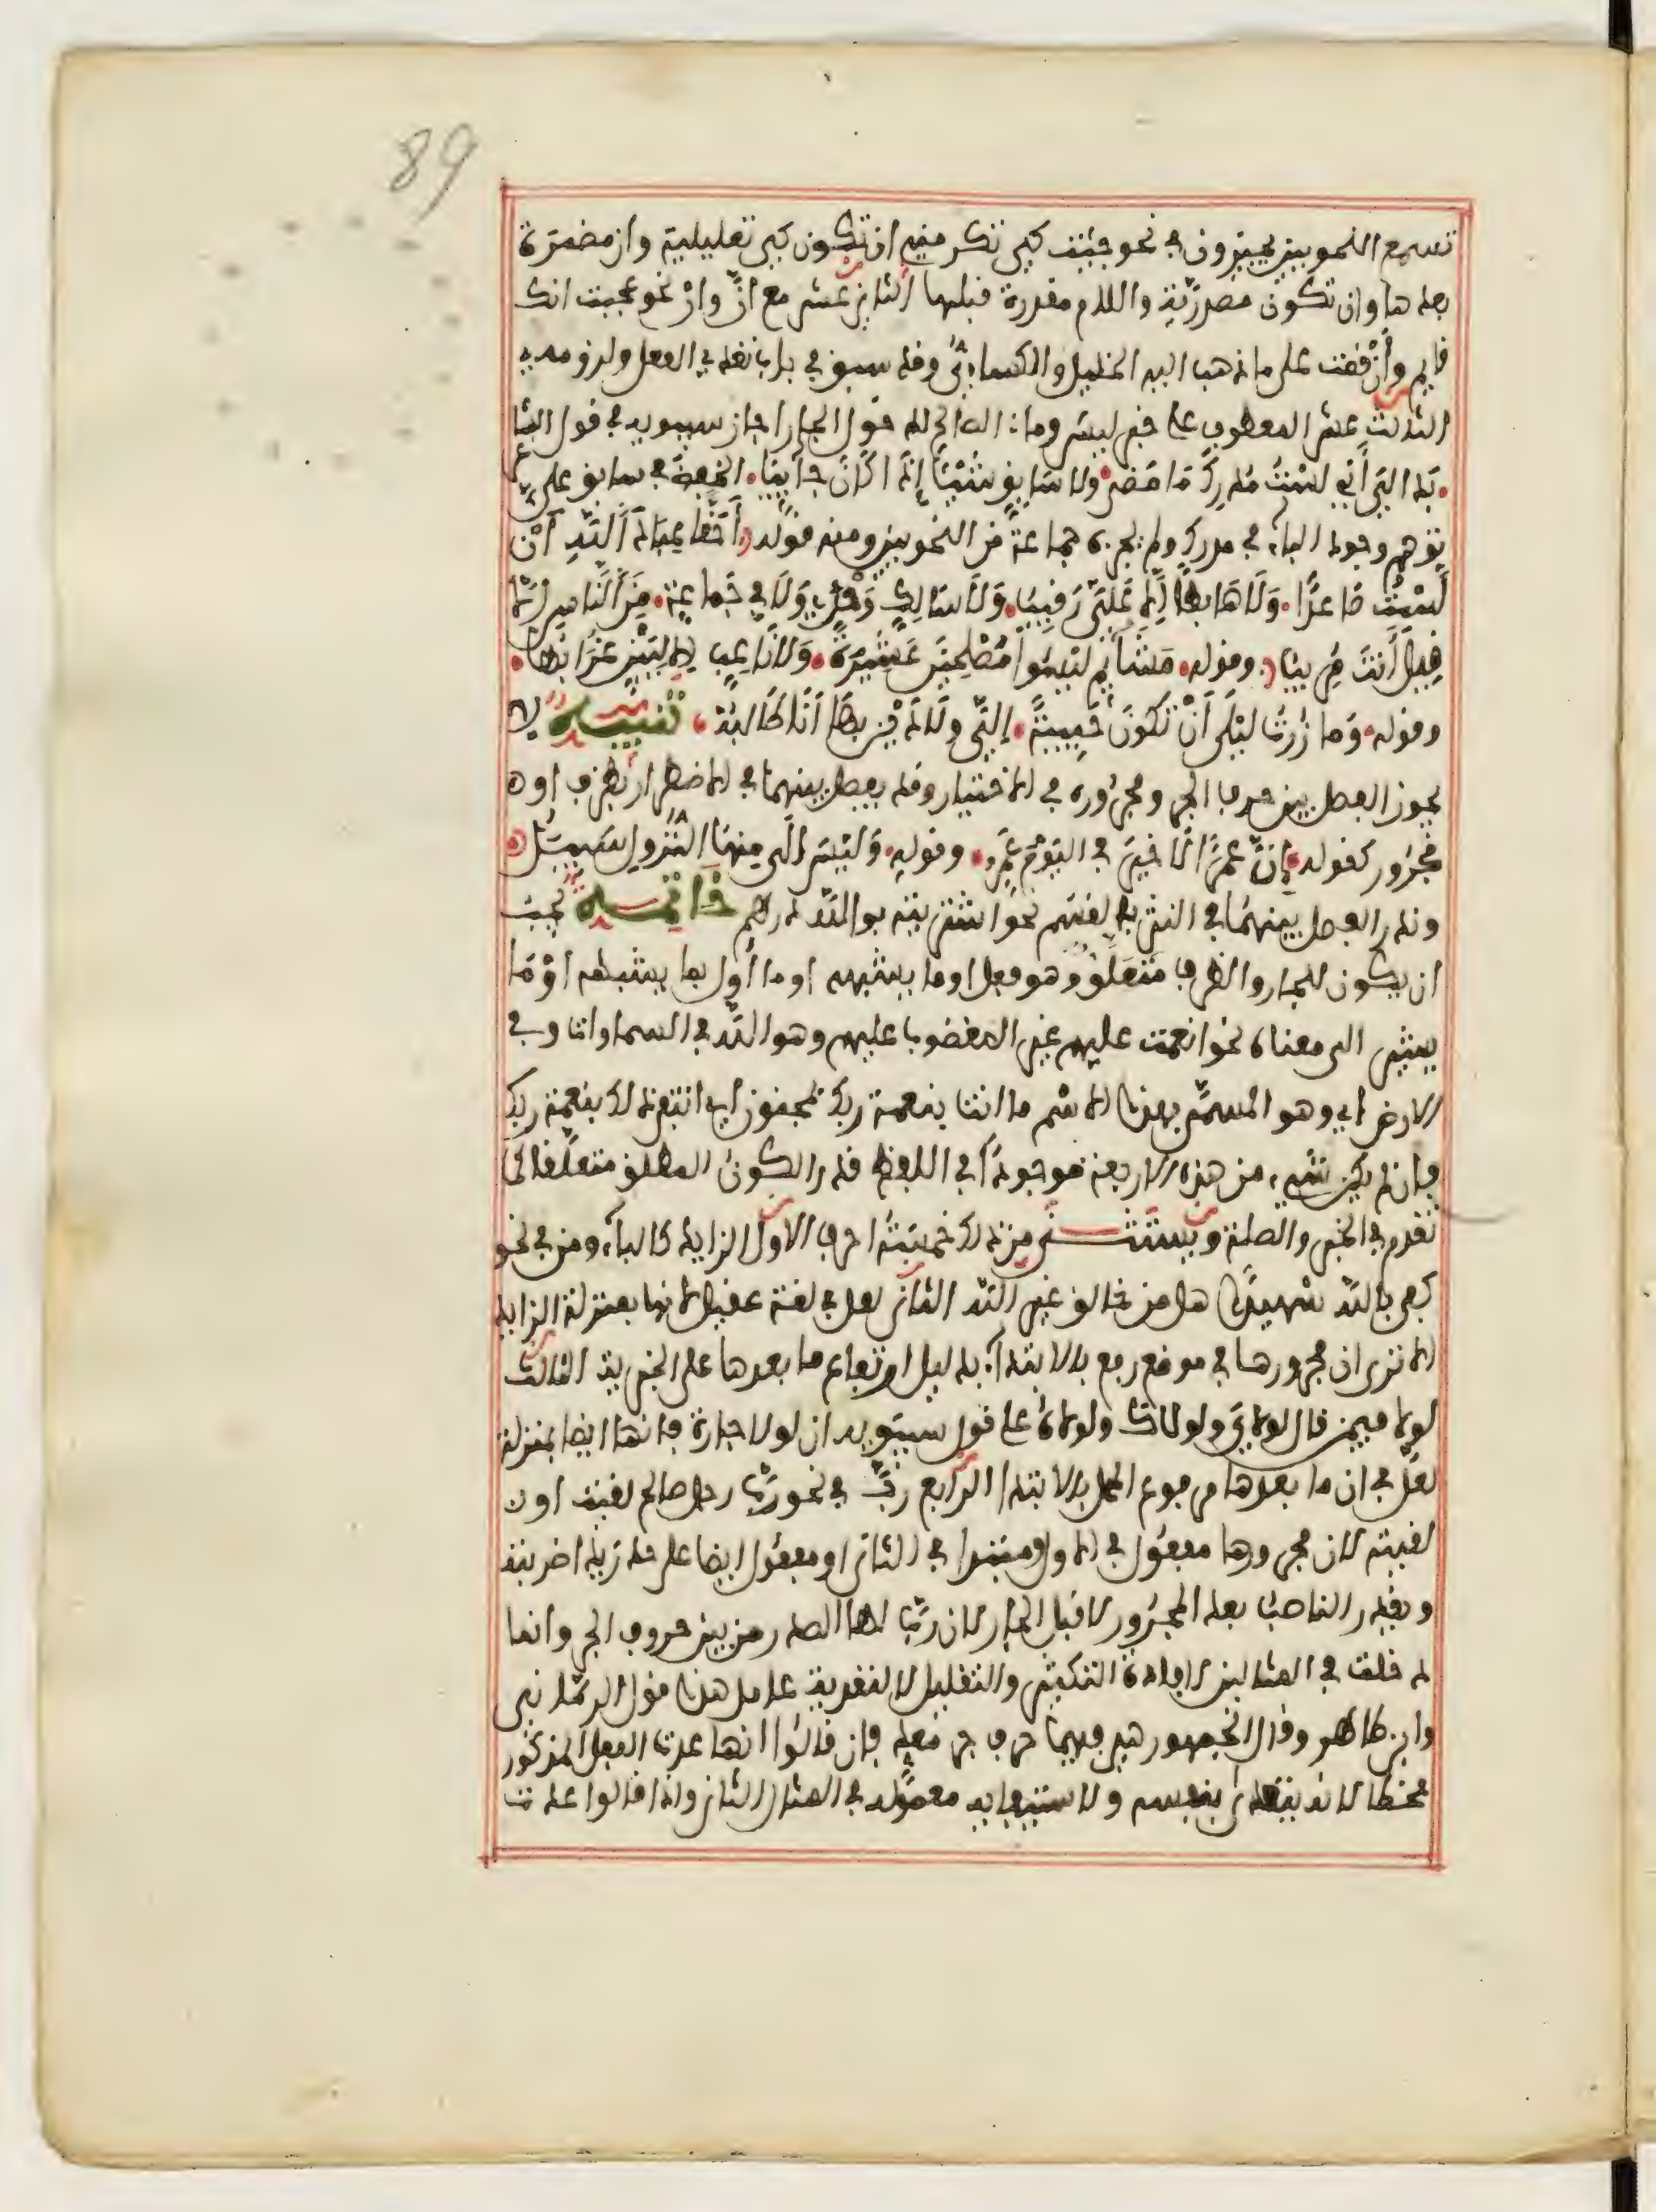 89
تسمع النحويين يجيزون في نحو جئت كي تكرمني ان تكون كي تعليلية وان مضمرة
بعدها وان تكون مصدرية واللام مقدرة قبلها الثاني عشر مع انّ وانْ نحو عجبت انك
قايم وأنْ قمت على ما ذهب اليه الخليل والكسائي وقد سبق في باب تعدي الفعل ولزومه
الثالث عشر المعطوف على خبر ليس وما الصالح لدخول الجار اجاز سيبويه في قول الشاعر
بَدَا لي أَنِّي لَسْتُ مُدرِكَ مَا مَضى ولا سَابِقٍ شَيْئًا إذَا كَانَ جَائِيَا الخفض في سابق على
توهم وجود الباء في مدرك ولم يجزه جماعة من النحويين ومنه قوله أَحَقًّا عِبَادَ اللّهِ أَنْ
لَسْتُ صَاعِدًا وَلَا هَابِطًا إلَّا عَلَيَّ رَقِيبُ وَلَا سَالِكٍ وَحْدِي وَلَا فِي جَمَاعَةٍ مِنَ النَّاسِ إلَّا
قِيلَ أَنْتَ مُرِيبُ وقوله مَشَائِيمُ لَيْسُوا مُصْلِحِينَ عَشِيرَةً وَلَا نَاعِبٍ إلَّا بِبَيْنٍ غُرَابُهَا
وقوله وَمَا زُرْتُ لَيْلَى أَنْ تَكُونَ حَبِيبَةً إلَيَّ وَلَا دَيْنٍ بِهَا أَنَا طَالِبُهْ تنبيه لا
يجوز الفصل بين حرف الجر ومجروره في الاختيار وقد يفصل بينهما في الاضطرار بظرف او
مجرور كقوله إنَّ عَمْرًا لَا خَيْرَ في اليَوْمَ عَمْرِو وقوله وَلَيْسَ إلَى مِنْهَا النُّزُولِ سَبِيلُ
وندر الفصل بينهما في النثر بالقسم نحو اشتريته بوالله درهم خاتمة يجب
ان يكون للجار والظرف متعلَّق وهو فعل او ما يشبهه او ما أول بما يشبهه أوْ مَا
يشير الى معناه نحو انعمت عليهم غير المغضوب عليهم وهو الله في السماوات وفي
الارض اي وهو المسمّى بهذا الاسم ما انت بنعمة ربك بمجنون اي انتفى ذلك بنعمة ربك
فان لم يكن شيء من هذه الاربعة موجودا في اللفظ قدر الكون المطلق متعلّقا كما
تقدم في الخبر والصلة ويستثنى من ذلك خمسة احرف الاول الزايد كالباء ومن في نحو
كفى بالله شهيدا هل من خالق غير الله الثاني لعل في لغة عقيل لانها بمنزلة الزايد
الا ترى ان مجرورها في موضع رفع بالابتداء بدليل ارتفاع ما بعدها على الخبرية الثالث
لولا فيمن قال لولاي ولولاك ولولاه على قول سيبويه ان لولا جارة فانها ايضا بمنزلة
لعل في ان ما بعدها مرفوع المحل بالابتداء الرابع ربّ في نحو ربّ رجل صالح لقيت او
لقيته لان مجرورها مفعول في الاول ومبتدا في الثاني او مفعول ايضا على حد زيدا ضربته
ويقدر الناصب بعد المجرور لا قبل الجار لان ربّ لها الصدر من بين حروف الجر وانما
دخلت في المثالين لافادة التكثير والتقليل لا لتعدية عامل هذا قول الرماني
وابن طاهر وقال الجمهور هي فيهما حرف جر معدٍّ فان قالوا انها عدت الفعل المذكور
فخطأ لانه يتعدى بنفسه ولاستيفايه معموله في المثال الثاني وان قالوا عدت